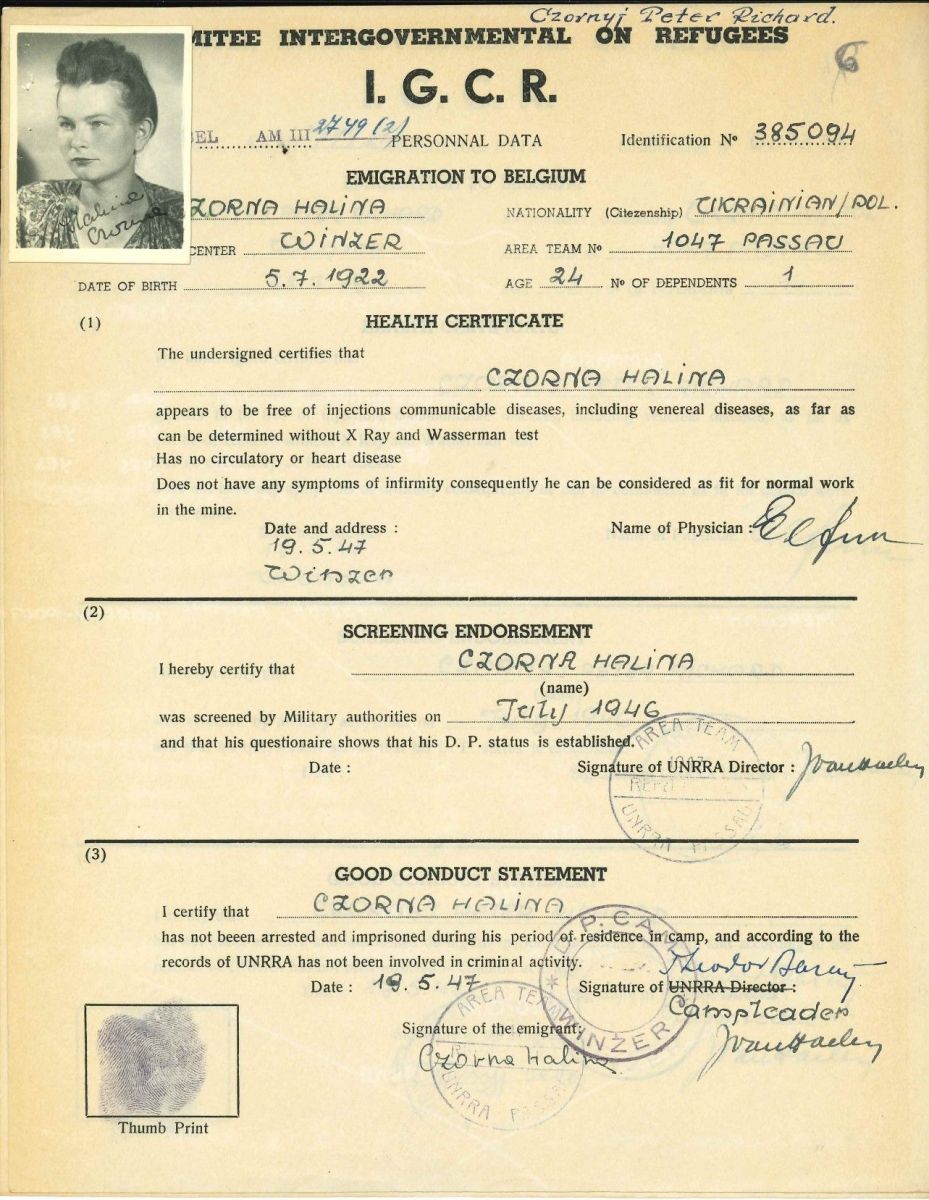 Czornyj Peter Richard.
MITEE INTERGOVERNMENTAL ON REFUGEES
6
I. G. C. R.
BEL AM III 2749 (2) PERSONNAL DATA Identification No 385094
EMIGRATION TO BELGIUM
ZORNA HALINA NATIONALITY (Citezenship) UKRAINIAN/POL.
CENTER WINZER AREA TEAM No 1047 PASSAU
DATE OF BIRTH 5.7.1922 AGE 24 No OF DEPENDENTS 1
Halina
Czorna
(1) HEALTH CERTIFICATE
The undersigned certifies that
CZORNA HALINA
appears to be free of injections communicable diseases, including venereal diseases, as far as
can be determined without X Ray and Wasserman test
Has no circulatory or heart disease
Does not have any symptoms of infirmity consequently he can be considered as fit for normal work
in the mine.
Date and address : Name of Physician :
19.5.47
Winzer
(2)
SCREENING ENDORSEMENT
I hereby certify that CZORNA HALINA
(name)
was screened by Military authorities on July 1946
and that his questionaire shows that his D. P. status is established.
Date : Signature of UNRRA Director :
AREA TEAM
1047
UNRRA PASSAU
(3)
GOOD CONDUCT STATEMENT
I certify that CZORNA HALINA
has not beeen arrested and imprisoned during his period of residence in camp, and according to the
records of UNRRA has not been involved in criminal activity.
Date : 19.5.47 Signature of UNRRA Director :
Campleader
D.P. CAMP
WINZER
AREA TEAM
UNRRA PASSAU
Signature of the emigrant:
Czorna Halina
Thumb Print